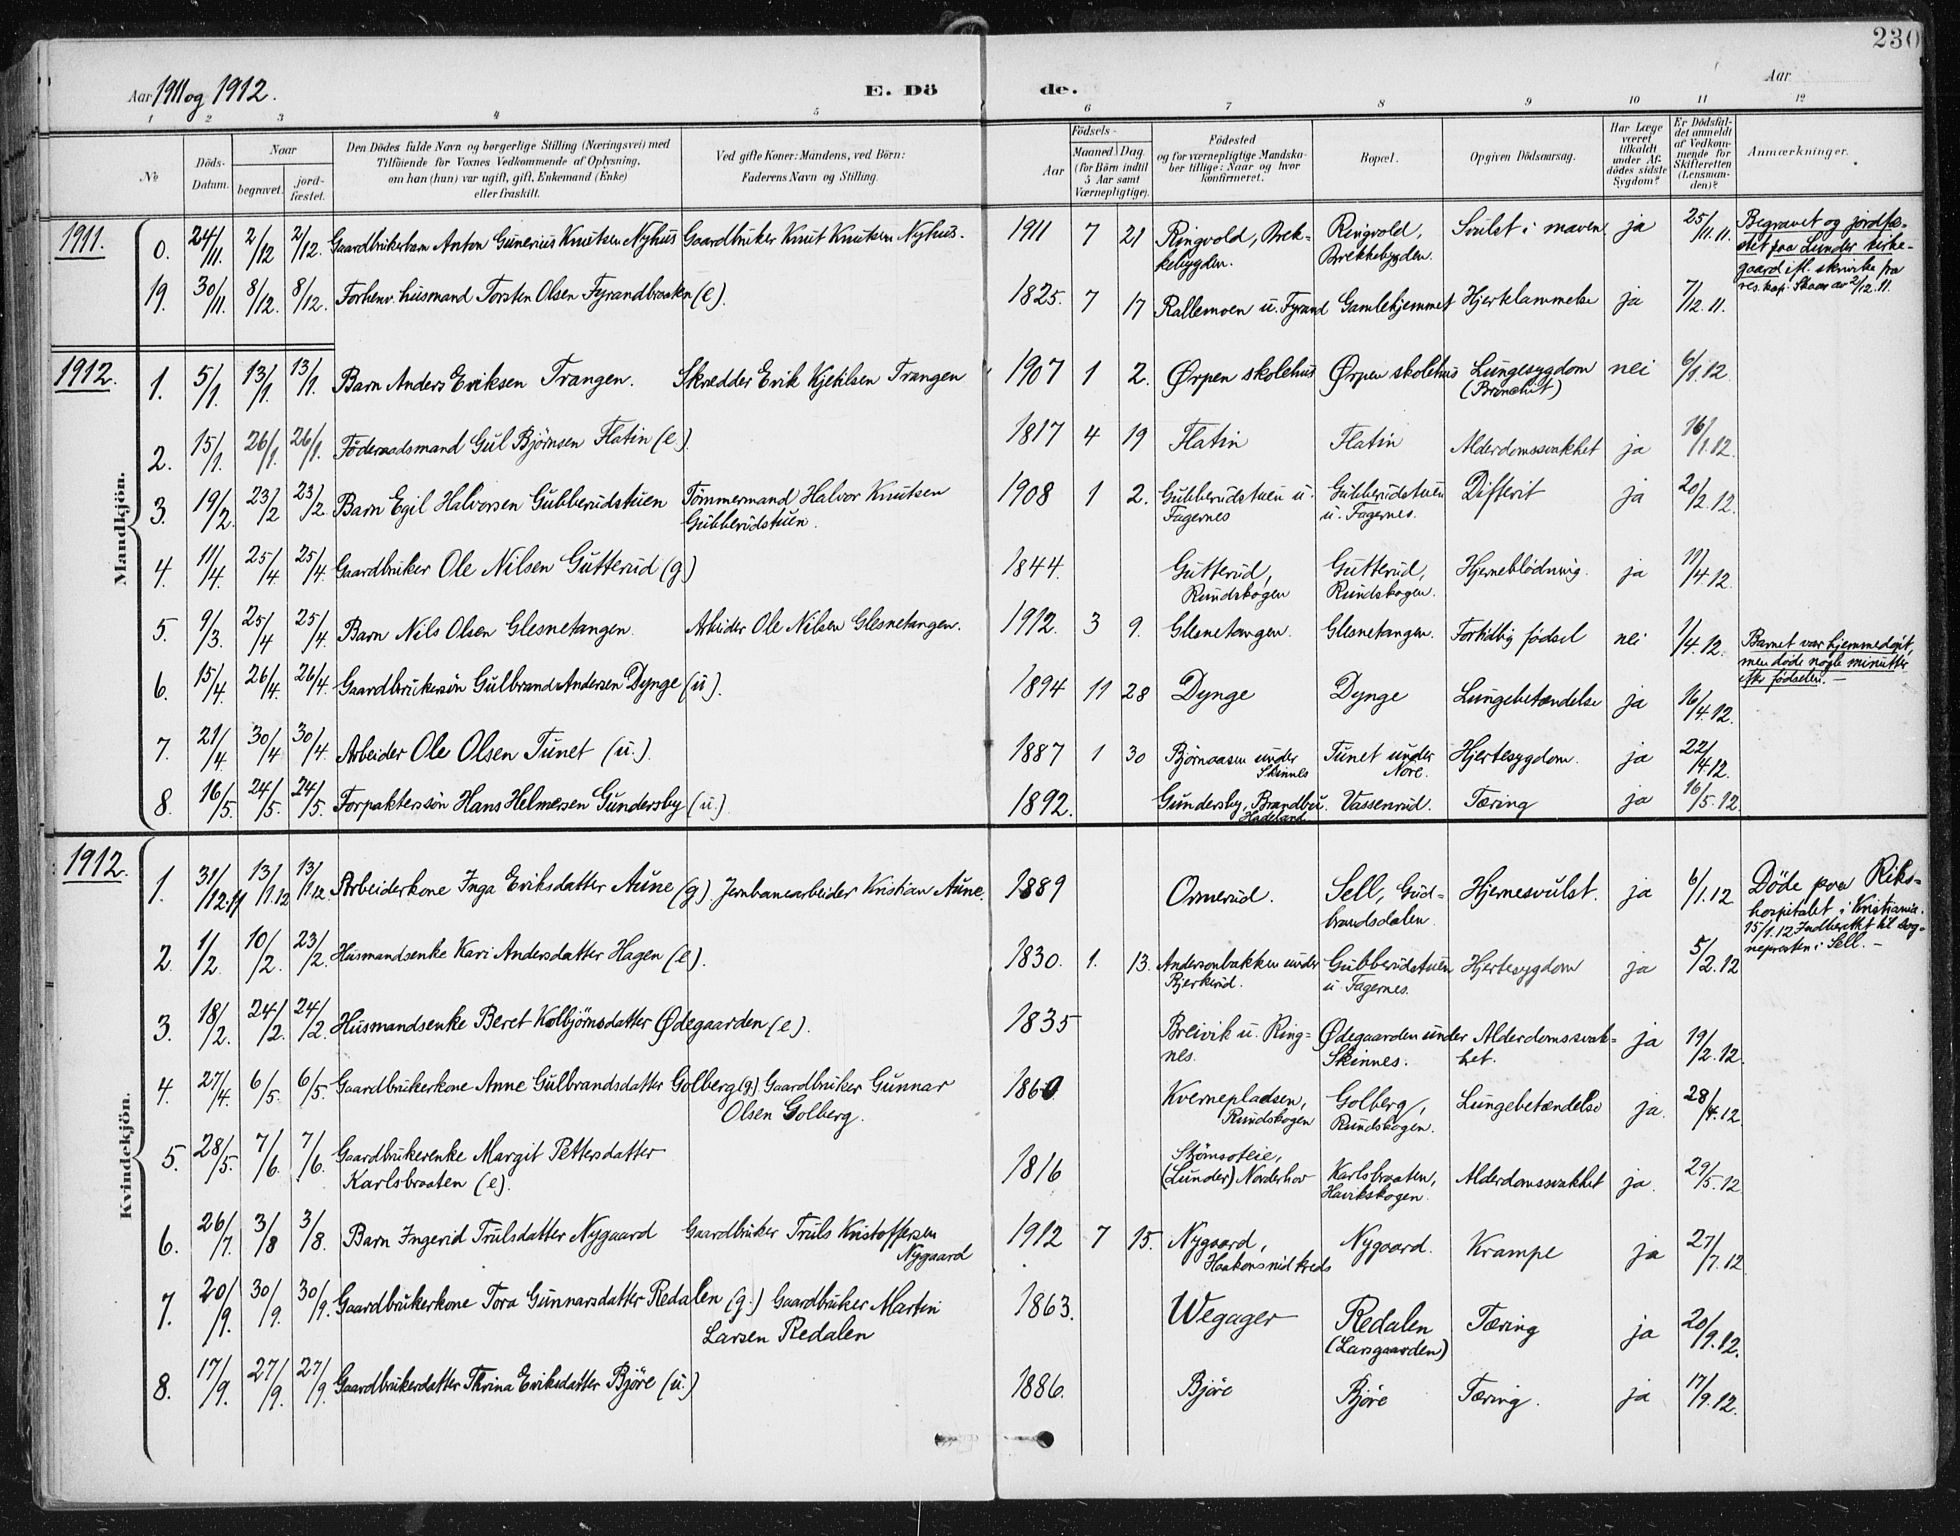 230
Aar 1911 og 1912.
E. Dö
de.
Aar
1 2 3 4 5 6 7 8 9 10 11 12
No
Döds-Datum.
Naar
begravet.
jord-fæstet.
Den Dödes fulde Navn og borgerlige Stilling (Næringsvei) med
Tilföiende for Voxnes Vedkommende af Oplysning,
om han (hun) var ugift, gift, Enkemand (Enke)
eller fraskilt.
Ved gifte Koner: Mandens, ved Börn:
Faderens Navn og Stilling.
Födsels-
Aar
Maaned Dag
(for Börn indtil
5 Aar samt
Værnepligtige).
Födested
og for værnepligtige Mandska-
ber tillige: Naar og hvor
konfirmeret.
Bopæl.
Opgiven Dödsaarsag.
Har Læge
været
tilkaldt
under Af-
dödes sidste
Sygdom?
Er Dödsfal-
det anmeldt
af Vedkom-
mende for
Skifteretten
(Lensman-
den)?
Anmærkninger.
Mandkjön.
1911.
0. 24/11. 2/12 2/12. Gaardbrukerbarn Anton Gunerius Knutsen Nyhus Gaardbruker Knut Knutsen Nyhus. 1911 7 21 Ringvold, Brek-
kebygden. Ringvold,
Brekkebygden. Svulst i maven ja 25/11.11. Begravet og jordfæ-
stet paa Lunder kirke-
gaard ifl. skrivelse fra
res. kap. Skaar av 2/12.11.
19. 30/11. 8/12. 8/12. Forhenv. husmand Torsten Olsen Fyrandbraaten (e). 1825. 7 17 Rallemoen u. Fyrand Gamlehjemmet Hjertelammelse ja 7/12.11.
1912.
1. 5/1. 13/1. 13/1. Barn Anders Eriksen Trangen. Skrædder Erik Kjetilsen Trangen 1907 1 2. Ørpen skolehus Ørpen skolehus Lungesygdom
(Bronchit) nei 6/1.12.
2. 15/1. 26/1. 26/1. Föderaadsmand Gul Björnsen Flatin (e.). 1817 4 19 Flatin Flatin Alderdomssvakhet ja 16/1.12.
3. 19/2. 23/2 23/2. Barn Egil Halvorsen Gubberudstuen Tömmermand Halvor Knutsen
Gubberudstuen. 1908 1 2. Gubberudstuen u.
Fagernes Gubberudstuen
u. Fagernes. Difterit ja 20/2.12.
4. 11/4. 25/4 25/4. Gaardbruker Ole Nilsen Gutterud (g) 1844. Gutterud,
Rundskogen Gutterud,
Rundskogen. Hjerneblödning. ja 11/4.12.
5. 9/3. 25/4 25/4. Barn Nils Olsen Glesnetangen. Arbeider Ole Nilsen Glesnetangen. 1912. 3 9. Glesnetangen. Glesnetangen. Fortidlig födsel nei 1/4.12. Barnet var hjemmedöpt,
men döde nogle minutter
efter födselen.
6. 15/4. 26/4. 26/4. Gaardbrukersön Gulbrand Andersen Dynge (u). 1894 11 28 Dynge Dynge Lungebetændelse ja 16/4.12.
7. 21/4 30/4 30/4. Arbeider Ole Olsen Tunet (u.). 1887 1 30 Björnaasen under
Skinnes Tunet under
Nore. Hjertesygdom. ja 22/4.12.
8. 16/5. 24/5. 24/5. Forpaktersön Hans Helmersen Gundersby (u.). 1892. Gundersby, Brandbu.
Hadeland Vassenrud. Tæring ja 16/5.12.
Kvindekjön.
1912.
1. 31/12.11 13/1.12 13/1.12. Arbeiderkone Inga Eriksdatter Aune (g). Jernbanearbeider Kristian Aune. 1889 Ormerud. Sell, Gud-
brandsdalen. Hjernesvulst. ja 6/1.12 Döde paa Riks-
hospitalet i Kristiania.
15/1.12 Indberettet til sog-
nepresten i Sell.
2. 1/2. 10/2. 23/2. Husmandsenke Kari Andersdatter Hagen (e). 1830. 1. 13. Andersonbakken under
Bjerkerud. Gubberudstuen
u. Fagernes. Hjertesygdom ja 5/2.12
3. 18/2. 24/2. 24/2. Husmandsenke Beret Kolbjörnsdatter Ødegaarden (e). 1835 Breivik u. Ring-
nes. Ødegaarden under
Skinnes. Alderdomssvak-
het. ja 19/2.12.
4. 27/4. 6/5. 6/5. Gaardbrukerkone Anne Gulbrandsdatter Golberg (g.) Gaardbruker Gunnar
Olsen Golberg. 1860 Kvernepladsen,
Rundskogen Golberg,
Rundskogen. Lungebetændelse ja. 28/4.12
5. 28/5. 7/6. 7/6. Gaardbrukerenke Margit Pettersdatter
Karlsbraaten (e). 1816 Strömsoteie,
(Lunder) Norderhov Karlsbraaten,
Havikskogen. Alderdomssvakhet ja. 29/5.12
6. 26/7. 3/8 3/8. Barn Ingerid Trulsdatter Nygaard Gaardbruker Truls Kristoffersen
Nygaard 1912 7 15. Nygaard,
Haakonsrud kreds Nygaard. Krampe ja 27/7.12
7. 20/9. 30/9. 30/9. Gaardbrukerkone Tora Gunnarsdatter Redalen (g.) Gaardbruker Martin
Larsen Redalen 1863. Wegager Redalen
(Larsgaarden) Tæring ja 20/9.12.
8. 17/9. 27/9. 27/9. Gaardbrukerdatter Thrina Eriksdatter Björe (u.) 1886. Björe Björe Tæring. ja 17/9.12.